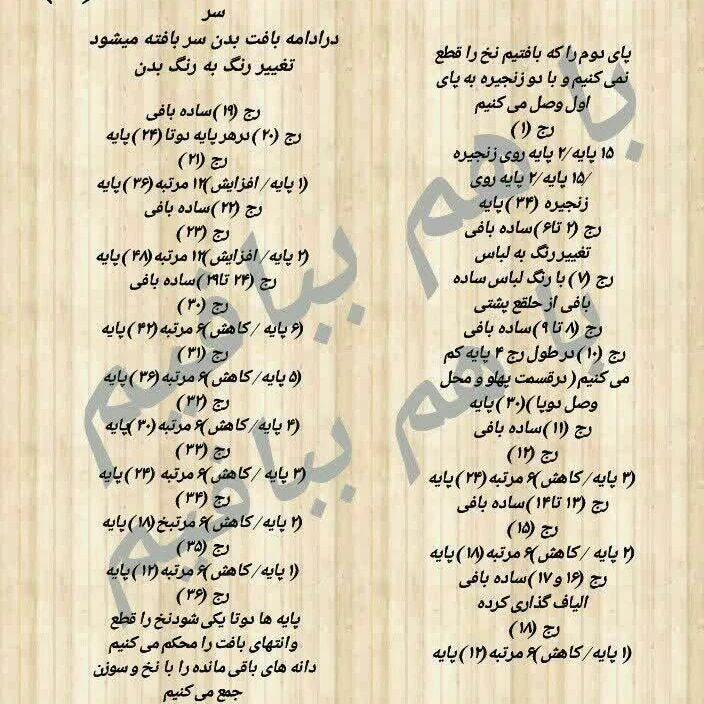 پای دوم را که بافتیم نخ را قطع
نمی کنیم و با دو زنجیره به پای
اول وصل می کنیم
رج (۱)
۱۵ پایه/۲ پایه روی زنجیره
/۱۵ پایه/۲ پایه روی
زنجیره (۳۴) پایه
رج (۲ تا۶) ساده بافی
تغییر رنگ به لباس
رج (۷) با رنگ لباس ساده
بافی از حلقع پشتی
رج (۸ تا ۹) ساده بافی
رج (۱۰) در طول رج ۴ پایه کم
می کنیم( درقسمت پهلو و محل
وصل دوپا )(۳۰) پایه
رج (۱۱) ساده بافی
رج (۱۲)
(۳ پایه/ کاهش)۶ مرتبه (۲۴) پایه
رج (۱۳ تا۱۴) ساده بافی
رج (۱۵)
(۲ پایه / کاهش)۶ مرتبه (۱۸) پایه
رج (۱۶ و ۱۷) ساده بافی
الیاف گذاری کرده
رج (۱۸)
(۱ پایه/ کاهش)۶ مرتبه (۱۲) پایه
سر
درادامه بافت بدن سر بافته میشود
تغییر رنگ به رنگ بدن
رج (۱۹) ساده بافی
رج (۲۰) درهر پایه دوتا (۲۴) پایه
رج (۲۱)
(۱ پایه/ افزایش)۱۲ مرتبه (۳۶) پایه
رج (۲۲) ساده بافی
رج (۲۳)
(۲ پایه/ افزایش)۱۲ مرتبه (۴۸) پایه
رج (۲۴ تا۲۹) ساده بافی
رج (۳۰)
(۶ پایه / کاهش)۶ مرتبه (۴۲) پایه
رج (۳۱)
(۵ پایه/ کاهش)۶ مرتبه (۳۶) پایه
رج (۳۲)
(۴ پایه/ کاهش)۶ مرتبه (۳۰) پایه
رج (۳۳)
(۳ پایه/ کاهش)۶ مرتبه (۲۴) پایه
رج (۳۴)
(۲ پایه/ کاهش)۶ مرتبخ (۱۸) پایه
رج (۳۵)
(۱ پایه/ کاهش)۶ مرتبه (۱۲) پایه
رج (۳۶)
پایه ها دوتا یکی شودنخ را قطع
وانتهای بافت را محکم می کنیم
دانه های باقی مانده را با نخ و سوزن
جمع می کنیم
با هم ببافیم
با هم ببافیم